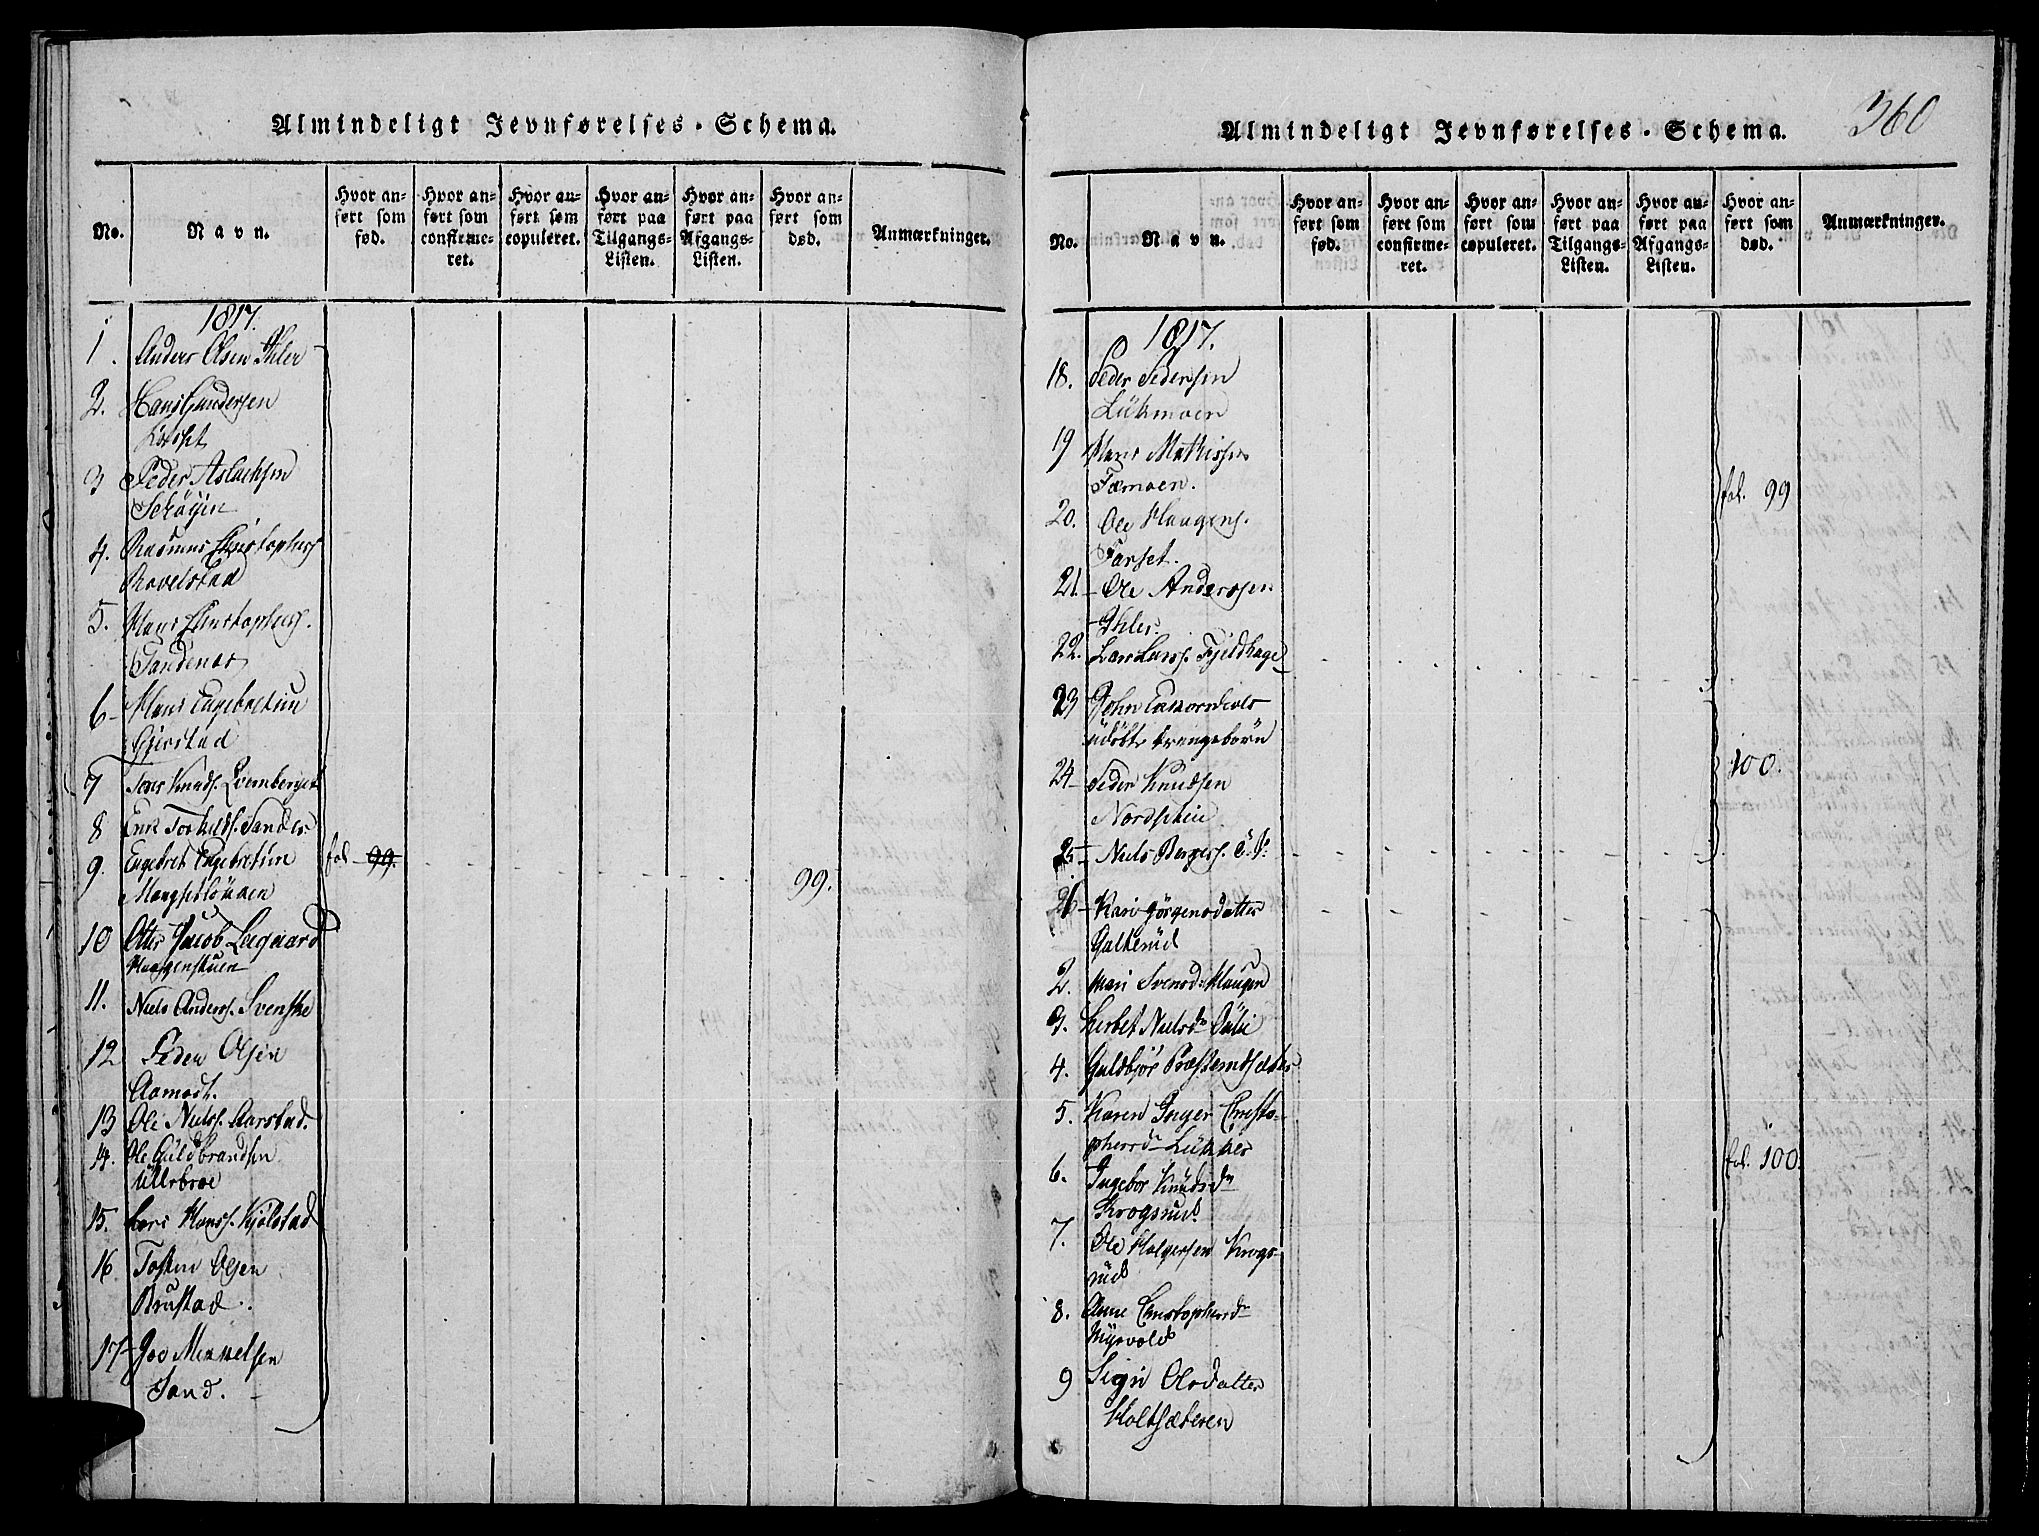 Almindeligt Jevnførelses-Schema.
No.
Navn.
Hvor an-
ført som
fød.
Hvor an-
ført som
confirme-
ret.
Hvor an-
ført som
copuleret.
Hvor an-
ført paa
Tilgangs-
Listen.
Hvor an-
ført paa
Afgangs-
Listen.
Hvor an-
ført som
død.
Anmærkninger.
1817.
1. Anders Olsen Ihler
2. Hans Gundersen
3 Peder Aslachsen
4. Rasmus Christophers
Ravelstad
5. Hans Christophers.
Sandenes
6 Hans Engebretsen
Gjerstad
7 Knuds.
8 Erik Torkilds. Sandes
9. Engebret Engebretsen fol. 99. 99.
10 Jacob Lagaard
Haagenstuen
11. Niels Anders. Svenske
12 Peder Olsen
Aamodt.
13 Ole Niels. Aarstad.
14. Ole Guldbrandsen
Ullebroe
15. Lars Hans. Kjølstad
16 Tosten Olsen
Brustad.
17 Joo Mikkelsen
Sand.
Almindeligt Jevnførelses-Schema. 360
No.
Navn.
Hvor an-
ført som
fød.
Hvor an-
ført som
confirme-
ret.
Hvor an-
ført som
copuleret.
Hvor an-
ført paa
Tilgangs-
Listen.
Hvor an-
ført paa
Afgangs-
Listen.
Hvor an-
ført som
død.
Anmærkninger.
1817.
18. Peder Pedersen
Lükmoen
19 Hans Mathissen
Fæmoen. fol. 99
20. Ole Haagens.
Farset.
21 Ole Anderssen
Ihler.
22. Lars Lars. Fjeldhage
23 John
udøbte Drengebørn
24 Peder Knudsen 100.
25 Niels Børges.
Kari Jørgensdatter
Galterud
2. Mari Svensd. Haugen
3. Lisbet Nielsdr
4. Guldbjør
5. Karen Inger Christo-
phersdr Lükker
fol. 100.
6. Ingebor Knudsdr
Krogsrud
7. Ole Holgersen Krogs-
rud
8. Anne Christophersdr
Myrvold
9 Sigri Olsdatter
Holtsæteren